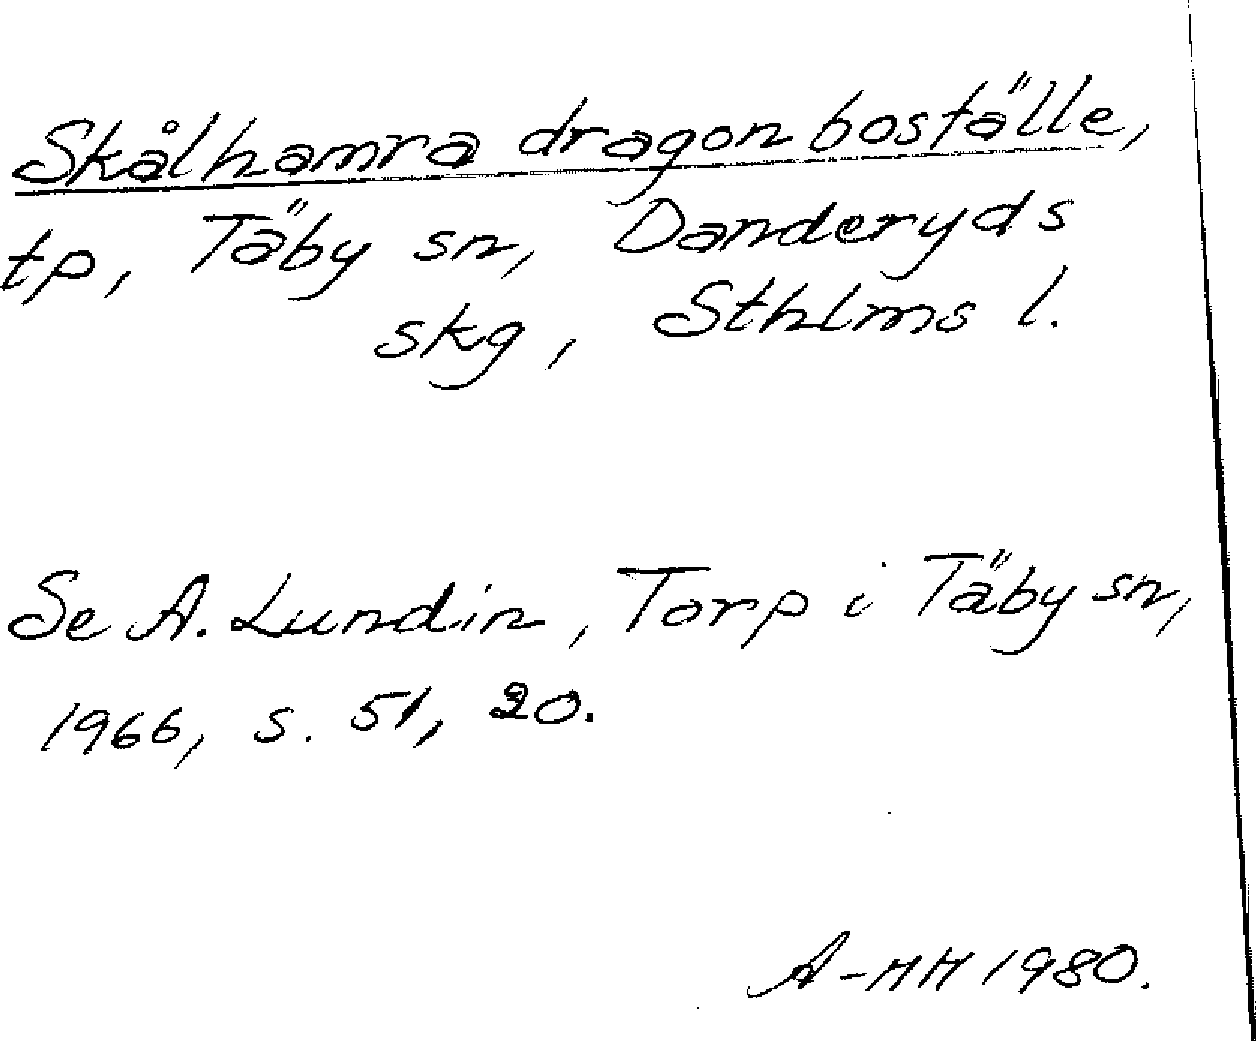 Skålhamra dragonboställe,
tp, Täby sn, Danderyds
skg, Sthlms l.
Se A. Lundin, Torp i Täby sn,
1966, s. 51, 20.
A-HH 1980.